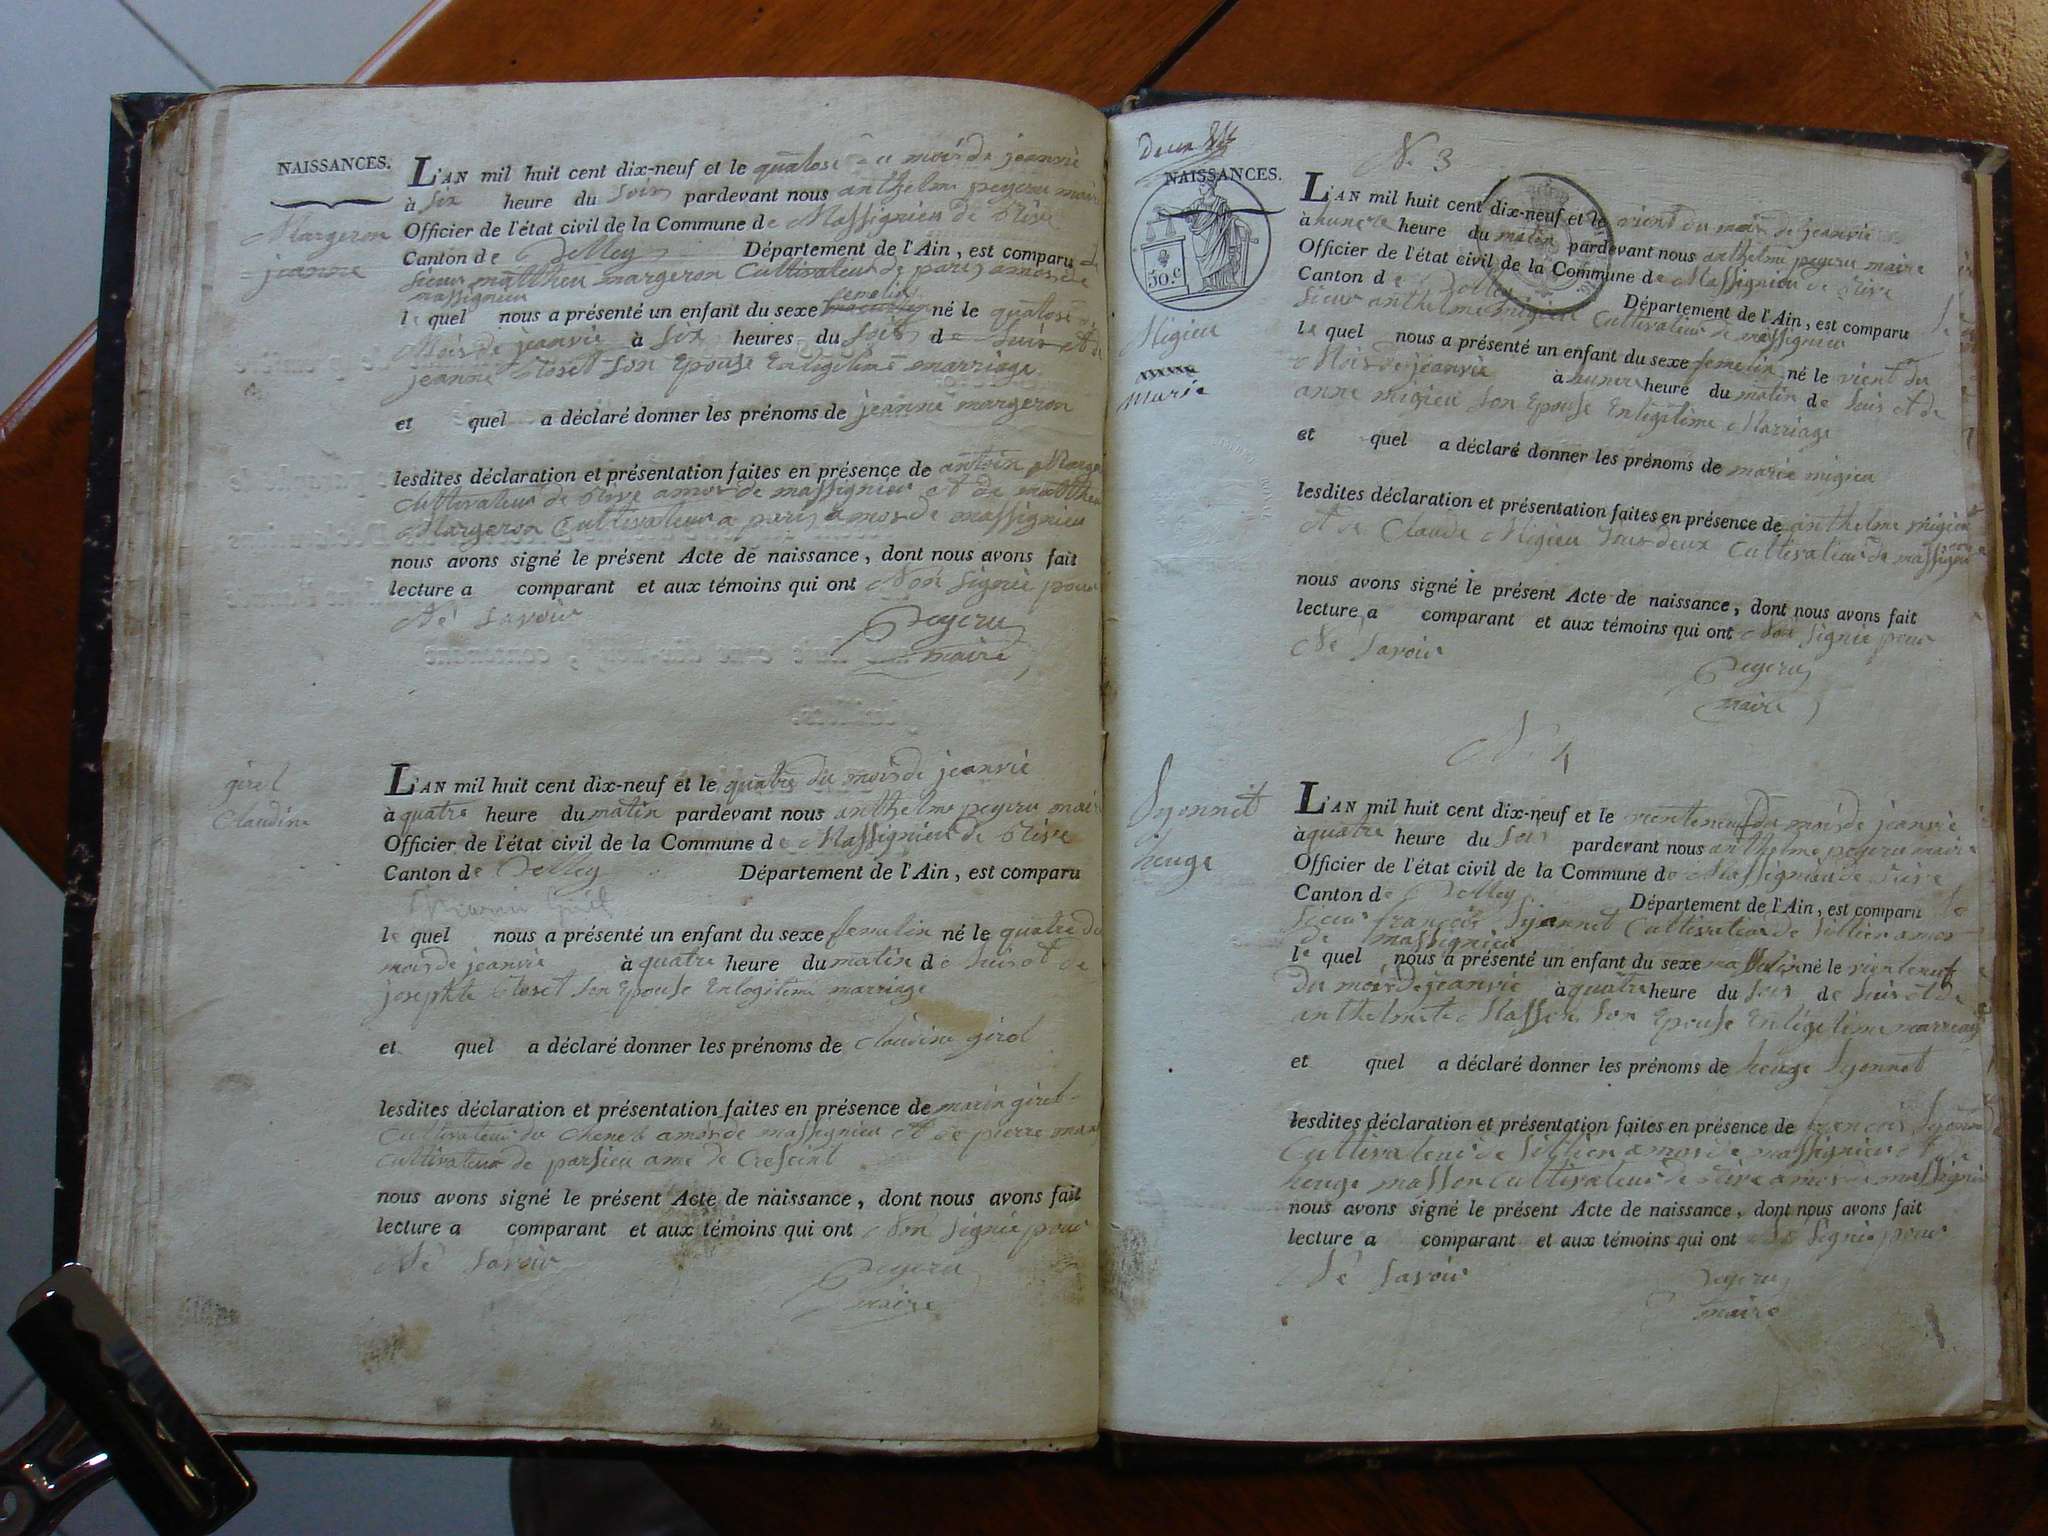 NAISSANCES.
Margeron
jeanne
L'AN mil huit cent dix-neuf et le quatose mois de jeanvié
à six heure du soir pardevant nous anthelme peyeru maire
Officier de l'état civil de la Commune de Massignieu de Rive
Canton de Belley Département de l'Ain, est comparu
sieur mattheu margeron Cultivateur de paris amos de
massignieu
femelin
le quel nous a présenté un enfant du sexe né le quatose
mois de jeanvié à six heures du soir de luis et de
jeanne son Epouse Enlegitime marriage
et quel a déclaré donner les prénoms de jeanne margeron
lesdites déclaration et présentation faites en présence de antoin Marge
cultivateur de Rive amos de massignieu et de mattheu
Margeron Cultivateur a paris amos de massignieu
nous avons signé le présent Acte de naissance, dont nous avons fait
lecture a comparant et aux témoins qui ont Non signié pour
Né savoir
Peyeru
maire
girel
Claudine
L'AN mil huit cent dix-neuf et le quatre du mois de jeanvié
à quatre heure du matin pardevant nous anthelme peyeru maire
Officier de l'état civil de la Commune de Massignieu de Rive
Canton de Belley Département de l'Ain, est comparu
Marin Girel
le quel nous a présenté un enfant du sexe femalin né le quatre du
mois de jeanvié à quatre heure du matin de luis et de
josephte son Epouse Enlegitime marriage
et quel a déclaré donner les prénoms de Claudine girel
lesdites déclaration et présentation faites en présence de marin girel
Cultivateur du amos de massignieu et de pierre
Cultivateur de parsieu
nous avons signé le présent Acte de naissance, dont nous avons fait
lecture a comparant et aux témoins qui ont Non signié pour
Né savoir
Peyeru
maire
NAISSANCES.
50.c
Migieu
marie
N. 3
L'AN mil huit cent dix-neuf et le vient du mois de jeanvié
à hunere heure du matin pardevant nous anthelme peyeru maire
Officier de l'état civil de la Commune de Massignieu de Rive
Canton de Belley Département de l'Ain, est comparu
sieur anthelme migieu Cultivateur de massignieu
le quel nous a présenté un enfant du sexe femelin né le vient du
Mois de jeanvié à hunere heure du matin de luis et de
anne migieu son Epouse Enlegitime Marriage
et quel a déclaré donner les prénoms de marie migieu
lesdites déclaration et présentation faites en présence de anthelme migieu
et de Claude Migieu tous deux Cultivateur de massignieu
nous avons signé le présent Acte de naissance, dont nous avons fait
lecture a comparant et aux témoins qui ont Non signié pour
Né savoir
Peyeru
maire
Lyonnet
heuge
N. 4
L'AN mil huit cent dix-neuf et le vienteneuf du mois de jeanvié
à quatre heure du soir pardevant nous anthelme peyeru maire
Officier de l'état civil de la Commune de Massignieu de Rive
Canton de Belley Département de l'Ain, est comparu
sieur françois Lyonnet Cultivateur de sillien amos
de massignieu
le quel nous a présenté un enfant du sexe né le vienteneuf
du mois de jeanvié à quatre heure du soir de luis et de
anthelmete Masson son Epouse Enlegitime marriage
et quel a déclaré donner les prénoms de heuge Lyonnet
lesdites déclaration et présentation faites en présence de françois Lyonnet
Cultivateur de sillien amos de massignieu et de
heuge masson Cultivateur de Rive amos de massignieu
nous avons signé le présent Acte de naissance, dont nous avons fait
lecture a comparant et aux témoins qui ont Non signié pour
Né savoir
Peyeru
maire